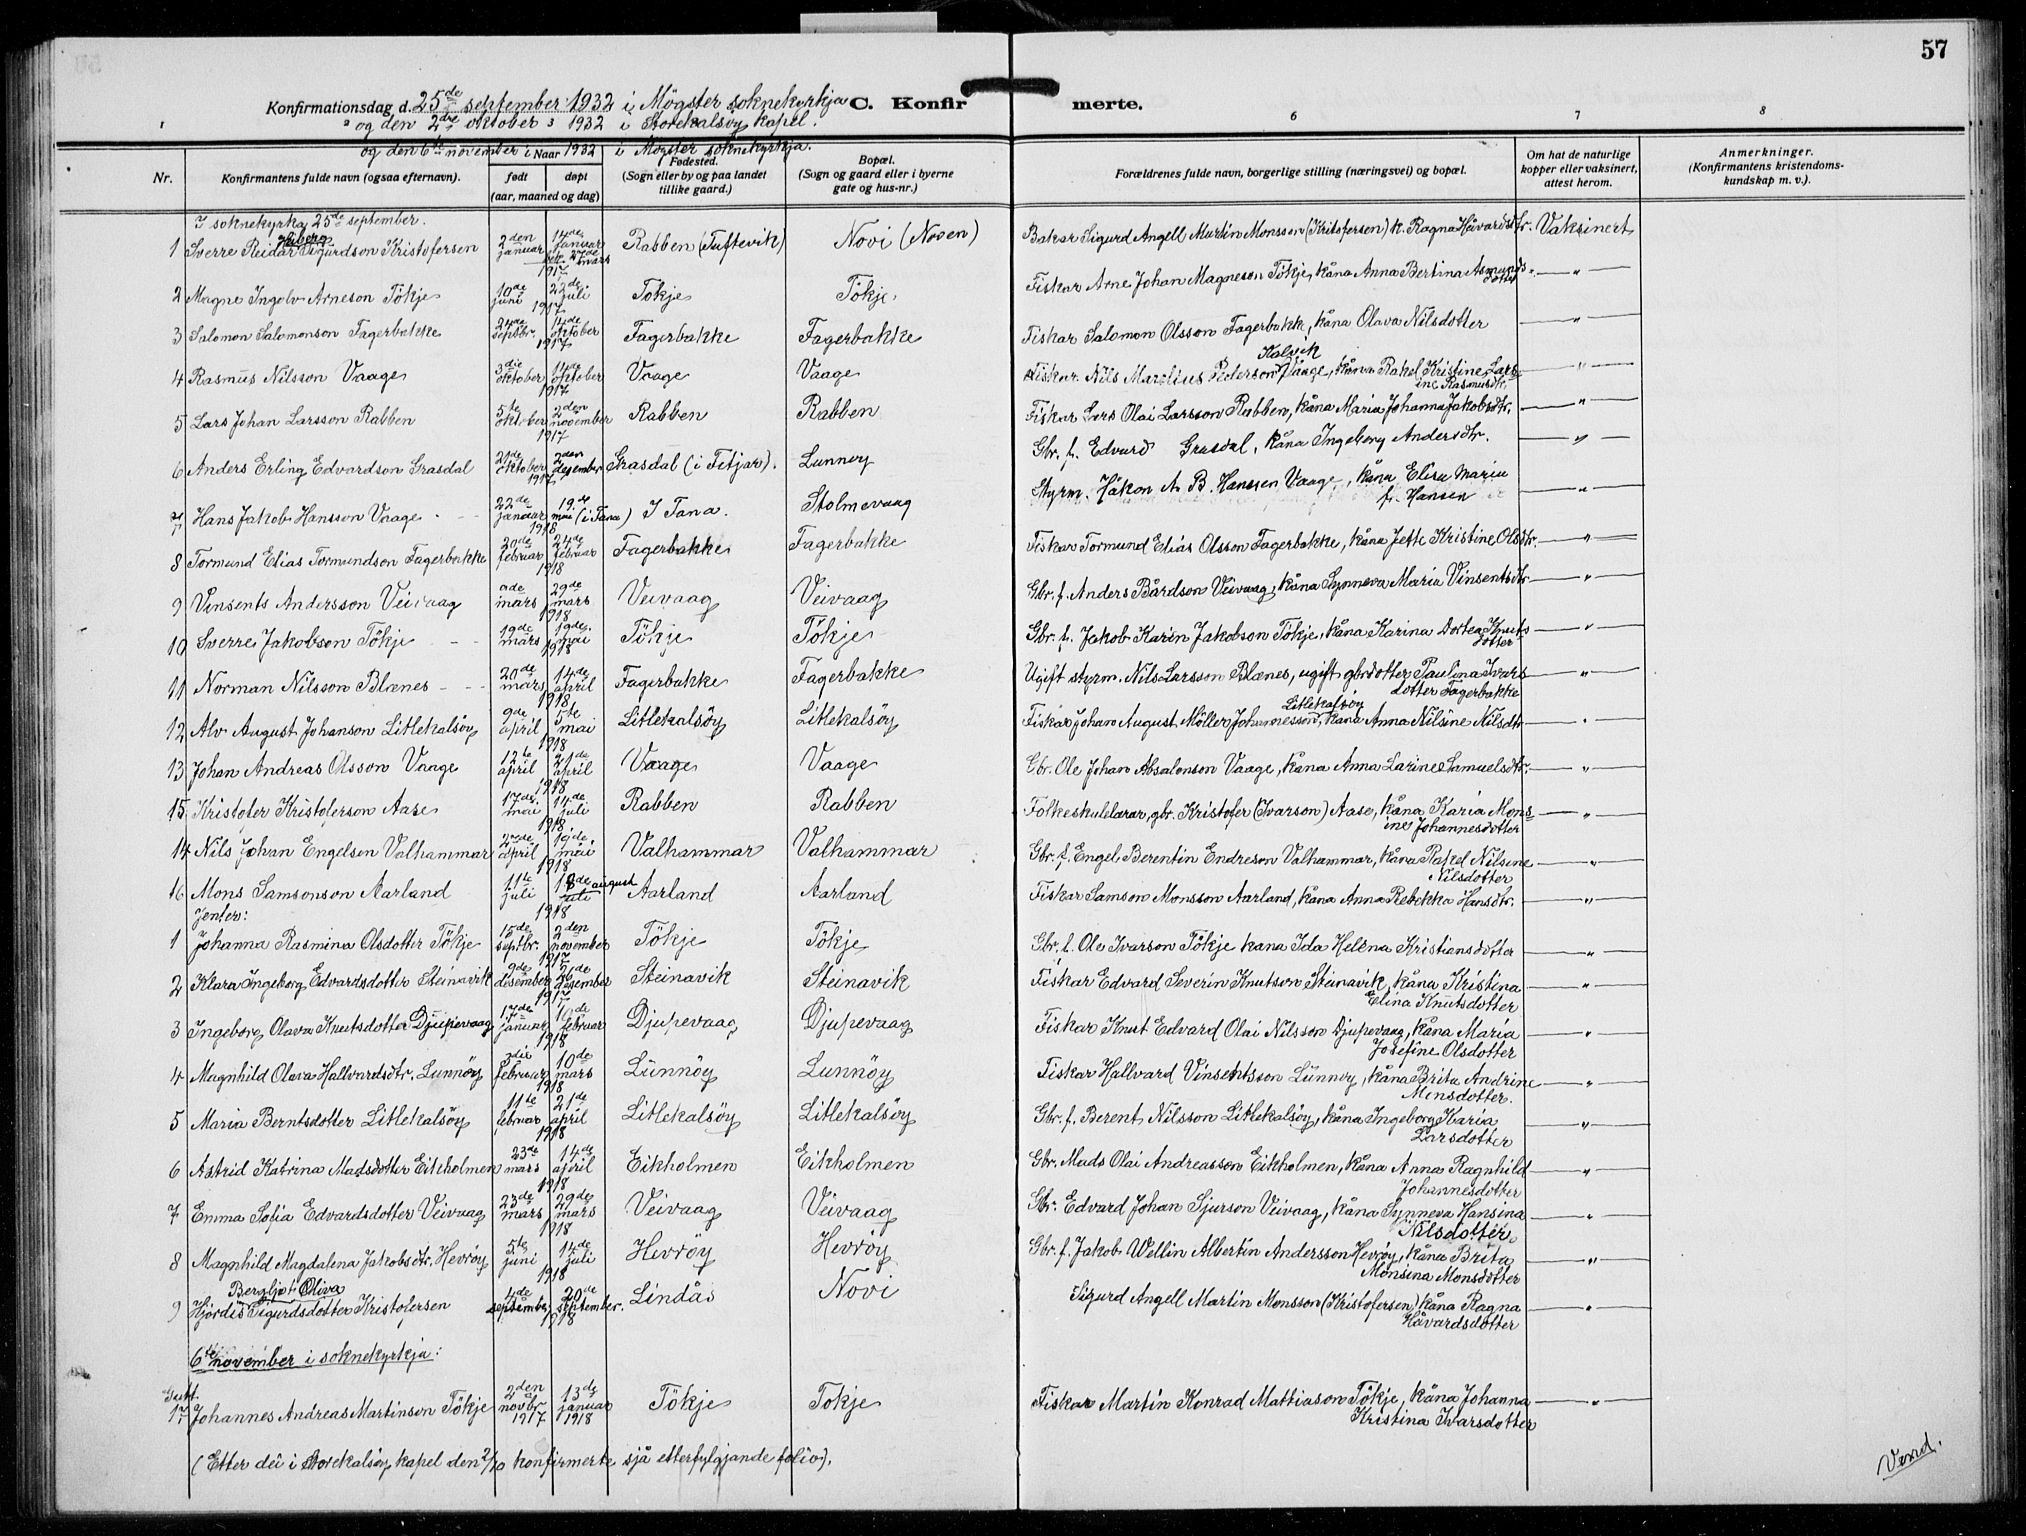 57
Konfirmationsdag d. 25de september 1932 i Mögster soknekyrkja C. Konfirmerte.
og den 2dre oktober 1932 i Storekalsøy kapel.
og den 6te november i 1932 i Mögster soknekyrkja.
1 6 7 8
Nr. Konfirmantens fulde navn (ogsaa efternavn). Naar født døpt (aar, maaned og dag) Fødested. (Sogn eller by og paa landet tillike gaard.) Bopæl. (Sogn og gaard eller i byerne gate og hus-nr.) Forældrenes fulde navn, borgerlige stilling (næringsvei) og bopæl. Om hat de naturlige kopper eller vaksinert, attest herom. Anmerkninger. (Konfirmantens kristendoms-kundskap m. v.).
I soknekyrkja 25de september.
1 Sverre Reidar Sigurdson Kristofersen 2den januar 14de januar 1917 Rabben (Tuftevik) Novi (Noven) Bakar Sigurd Angell Martin Monsson (Kristofersen) k. Ragna Håvardsdtr. Vaksinert
2 Magne Ingolv Arneson Tökje 10de juni 22de juli 1917 Tökje Tökje Fiskar Arne Johan Magneson Tökje, kåna Anna Bertina Asmundsdotter — „ —
3 Salomon Salomonson Fagerbakke 24de septbr. 14de oktober 1917 Fagerbakke Fagerbakke Fiskar Salomon Olsson Fagerbakk, kåna Olava Nilsdotter — „ —
4 Rasmus Nilsson Vaage 3die oktober 14de oktober 1917 Vaage Vaage Fiskar Nils Marelius Pederson Kalvik Vaage, kåna Rakel Kristine Larsine Rasmusdtr. — „ —
5 Lars Johan Larsson Rabben 5te oktober 2den november 1917 Rabben Rabben Fiskar Lars Olai Larsson Rabben, kåna Maria Johanna Jakobsdtr. — „ —
6 Anders Erling Edvardson Grasdal 21de oktober 2den desember 1917 Grasdal (i Fitjar). Lunnøy Gbr. f. Edvard Grasdal, kåna Ingeborg Andersdtr. — „ —
7 Hans Jakob Hansson Vaage 22de januar 19de mai (i Tana) 1918 I Tana. Stolmevaag Styrm. Håkon A. B. Hanssen Vaage, kåna Elisa Maria f. Hansen — „ —
8 Tormund Elias Tormundson Fagerbakke 20de februar 24de februar 1918 Fagerbakke Fagerbakke Fiskar Tormund Elias Olsson Fagerbakke, kåna Jette Kristine Olsdtr. — „ —
9 Vinsents Andersson Veivaag mars 29de mars 1918 Veivaag Veivaag Gbr. f. Anders Bårdson Veivaag, kåna Synneva Maria Vinsentsdtr — „ —
10 Sverre Jakobson Tökje 19de mars 19de mai 1918 Tökje Tökje Gbr. f. Jakob Karin Jakobson Tökje, kåna Karina Dortea Knutsdotter — „ —
11 Norman Nilsson Blænes 20de mars 14de april 1918 Fagerbakke Fagerbakke Ugift styrm. Nils Larsson Blænes, ugift gbrdotter Paulina Ivarsdotter Fagerbakke — „ —
12 Alv August Johanson Litlekalsöy 9de april 5te mai 1918 Litlekalsöy Litlekalsöy Fiskar Johan August Möller Johannesson Litlekalsöy, kåna Anna Nilsine Nilsdtr — „ —
13 Johan Andreas Olsson Vaage 12te april 21de april 1918 Vaage Vaage Gbr. Ole Johan Absalonson Vaage, kåna Anna Larine Samuelsdtr. — „ —
15 Kristofer Kristoferson Aase 17de mai 14de juli 1918 Rabben Rabben Folkeskulelærar, gbr. Kristofer (Ivarson) Aase, kåna Karia Monsine Johannesdotter — „ —
14 Nils Johan Engelsen Valhammar 27de april 19de mai 1918 Valhammar Valhammar Gbr. f. Engel Berentin Endreson Valhammar, kåna Rakel Nilsine Nilsdotter — „ —
16 Mons Samsonson Aarland 11te juli 18de august 1918 Aarland Aarland Fiskar Samson Monsson Aarland, kåna Anna Rebekka Hansdtr. — „ —
Jenter:
1 Johanna Rasmina Olsdotter Tökje 15de septbr. 2den november 1917 Tökje Tökje Gbr. f. Ole Ivarson Tökje kåna Ida Helena Kristiansdotter — „ —
2 Klara Ingeborg Edvardsdotter Steinavik 9de desember 26de desember 1917 Steinavik Steinavik Fiskar Edvard Severin Knutson Steinavik, kåna Kristina Elina Knutsdotter — „ —
3 Ingeborg Olava Knutsdotter Djupevaag 17de januar 10de februar 1918 Djupevaag Djupevaag Fiskar Knut Edvard Olai Nilsson Djupevaag, kåna Maria Josefine Olsdotter — „ —
4 Magnhild Olava Hallvardsdtr. Lunnöy 3die februar 10de mars 1918 Lunnöy Lunnöy Fiskar Hallvard Vinsentsson Lunnöy, kåna Brita Andrine Monsdotter. — „ —
5 Maria Berntsdotter Litlekalsöy 11te februar 21de april 1918 Litlekalsöy Litlekalsöy Gbr. f. Berent Nilsson Litlekalsöy, kåna Ingeborg Karia Larsdotter — „ —
6 Astrid Katrina Madsdotter Eikholmen 23de mars 14de april 1918 Eikholmen Eikholmen Gbr. Mads Olai Andreasson Eikholmen, kåna Anna Ragnhild Johannesdotter — „ —
7 Emma Sofia Edvardsdotter Veivaag 23de mars 29de mars 1918 Veivaag Veivaag Gbr. Edvard Johan Sjurson Veivaag, kåna Synneva Hansina Nilsdotter. — „ —
8 Magnhild Magdalena Jakobsdtr. Hevröy 5te juni 14de juli 1918 Hevröy Hevröy Gbr. f. Jakob Wellin Albertin Andersson Hevröy, kåna Brita Monsina Monsdotter — „ —
Bergljot Oliva
9 Hjördis Sigurdsdotter Kristofersen 4de september 20de september. 1918 Lindås Novi Sigurd Angell Martin Monsson (Kristofersen) kåna Ragna Håvardsdotter — „ —
6te november i soknekyrkja:
Gutt.
17 Johannes Andreas Martinson Tökje 2den novbr. 1917 13de januar 1918 Tökje Tökje Fiskar Martin Konrad Mattiason Tökje, kåna Johanna Kristina Ivarsdotter — „ —
(Etter dei i Storekalsöy kapel den 2/10 konfirmerte sjå etterfylgjande folio).
Vend.